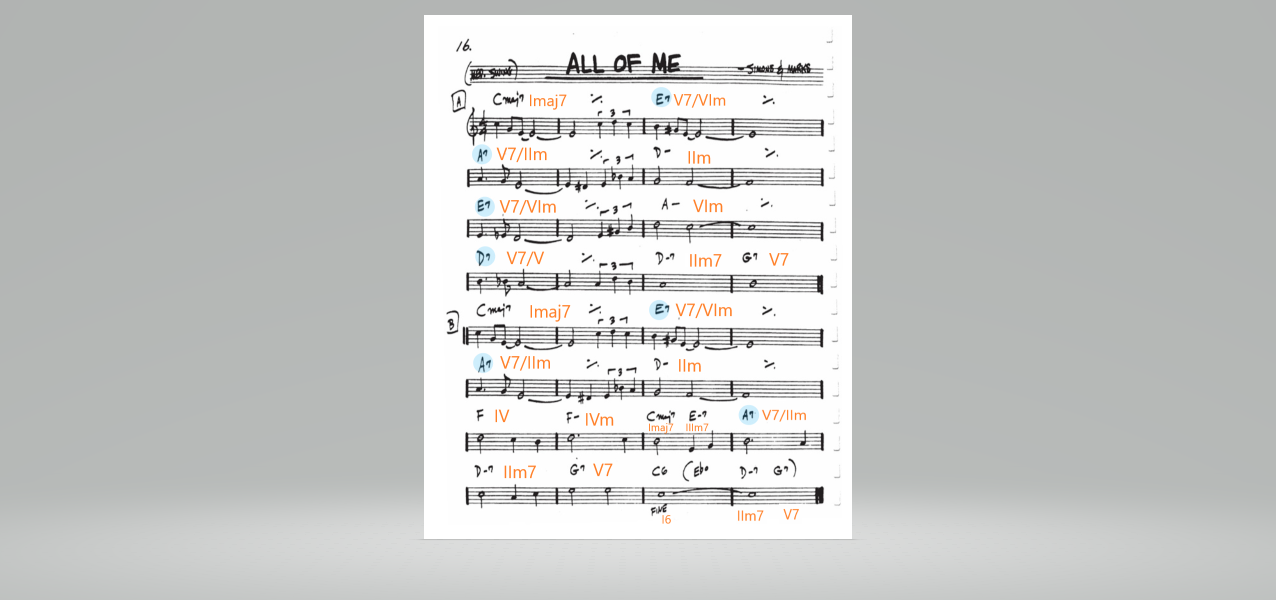 16.
(MED. SWING)
ALL OF ME
- SIMONS & MARKS
A
Cmaj7 Imaj7 ٪ E7 V7/VIm ٪
3
A7 V7/IIm ٪ D- IIm ٪
3
E7 V7/VIm ٪ A- VIm ٪
3
D7 V7/V ٪ D-7 IIm7 G7 V7
3
B
Cmaj7 Imaj7 ٪ E7 V7/VIm ٪
3
A7 V7/IIm ٪ D- IIm ٪
3
F IV F- IVm Cmaj7 E-7 A7 V7/IIm
Imaj7 IIIm7
D-7 IIm7 G7 V7 C6 (Ebo D-7 G7)
FINE
I6 IIm7 V7